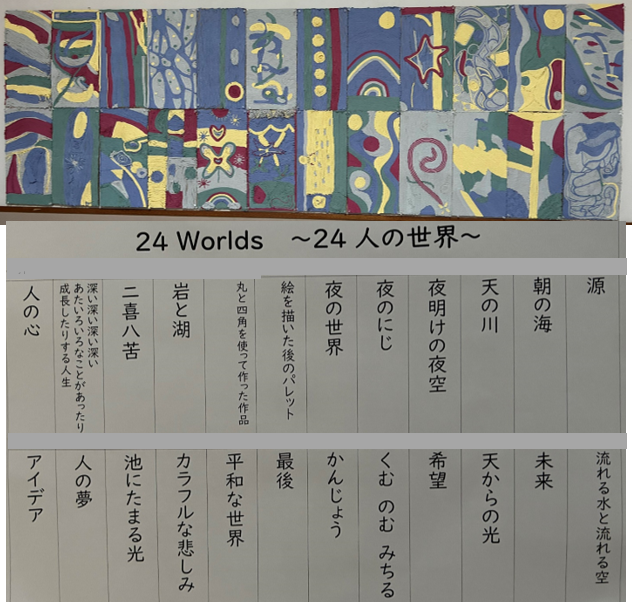 24 Worlds ～24 人の世界～
源
朝の海
天の川
夜明けの夜空
夜のにじ
夜の世界
絵を描いた後のパレット
丸と四角を使って作った作品
岩と湖
二喜八苦
深い深い深い深い
あたいろいろなことがあったり
成長したりする人生
人の心
流れる水と流れる空
未来
天からの光
希望
くむ のむ みちる
かんじょう
最後
平和な世界
カラフルな悲しみ
池にたまる光
人の夢
アイデア